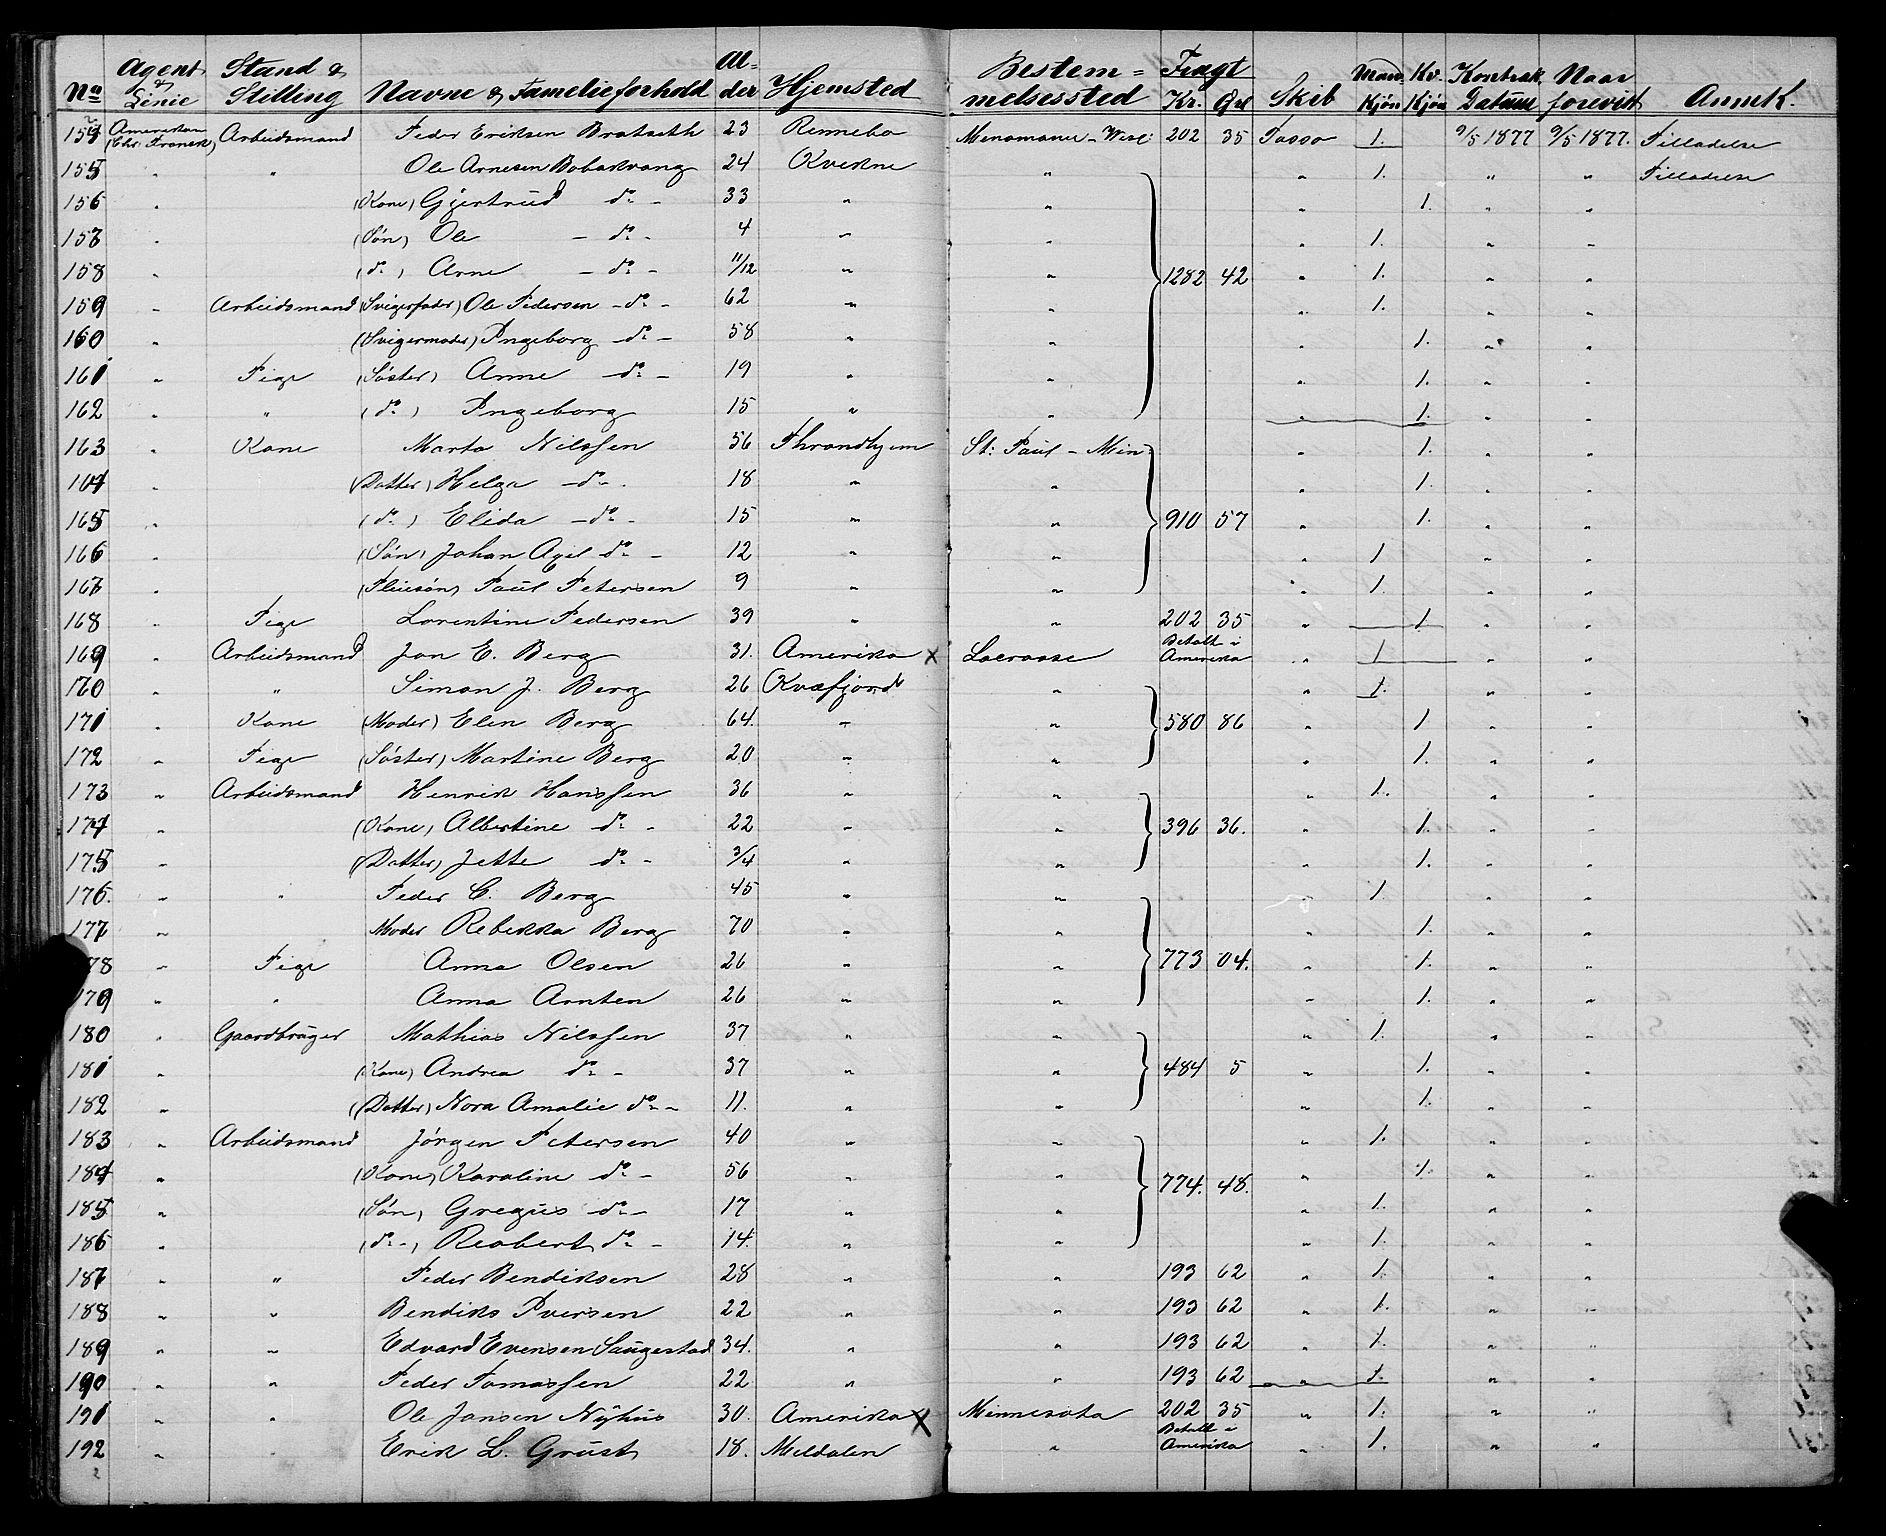 No Agent & Linie Stand & Stilling Navne & Familieforhold Alder Hjemsted Bestemmelsessted Fragt Kr. Øre Skib Mand Kjøn Kv. Kjøn Kontrak Datum Naar forevist Anmk.
154 Amerikan (Chr. Franck) Arbeidsmand Peder Eriksen Bratseth 23 Rennebo Menomonie - Wisc: 202 35 Tasso 1. 9/5 1877 9/5 1877. Tilladelse
155 " " Ole Arnesen 24 Kvikne " " 1. " " Tilladelse
156 " (Kone) Gjertrud do - 33 " " " 1. " "
157 " (Søn) Ole - do - 4 " " " 1. " "
158 " (do) Arne - do - 11/12 " " 1282 42 " 1. " "
159 " Arbeidsmand (Svigerfader) Ole Pedersen - do - 62 " " " 1. " "
160 " (Svigermoder) Ingeborg - do - 58 " " " 1. " "
161 " Pige (Søster) Anne - do - 19 " " " 1. " "
162 " " (do) Ingeborg 15 " " " 1. " "
163 " Kone Marta Nilssen 56 Throndhjem St: Paul - Min: " 1. " "
164 " (Datter) Helga - do - 18 " " " 1. " "
165 " (do) Elida - do - 15 " " 910 57 " 1. " "
166 " (Søn) Johan Axel do - 12 " " " 1 " "
167 " (Pleiesøn) Paul Petersen 9 " " " 1. " "
168 " Pige Lorentine Pedersen 39 " " 202 35 " 1 " "
169 " Arbeidsmand Jon E. Berg 31. Amerika x Lacrosse Betalt i Amerika " 1 " "
170 " " Simon J. Berg 26 Kvæfjord " " 1. " "
171 " Kone (Moder) Elen Berg 64. " " 580 86 " 1 " "
172 " Pige (Søster) Martine Berg 20 " " " 1. " "
173 " Arbeidsmand Henrik Hanssen 36 " " " 1. " "
174 " (Kone) Albertine do - 22 " " 396 36. " 1. " "
175 " (Datter) Jette do - 3/4 " " " 1. " "
176. " " Peder C. Berg 45 " " " 1. " "
177 " Moder Rebekka Berg 70 " " " 1. " "
178 " Pige Anna Olsen 26 " " 773 04. " 1. " "
179 " " Anna Arntsen 26 " " " 1. " "
180 " Gaardbruger Mathias Nilssen 37 " " " 1. " "
181 " (Kone) Andrea do - 37 " " 484 5 " 1. " "
182 " (Datter) Nora Amalie do - 11. " " " 1. " "
183 " Arbeidsmand Jørgen Petersen 40 " " " 1. " "
184 " (Kone) Karoline do - 56 " " 774. 48. " 1. " "
185 " (Søn) Gregus do - 17 " " " 1. " "
186 " (do -) Reobert do - 14. " " " 1. " "
187 " " Peder Bendiksen 28 " " 193 62 " 1. " "
188 " " Bendiks Iversen 22 " " 193 62 " 1. " "
189 " " Edvard Evensen Saugestad 34. " " 193 62 " 1. " "
190 " " Peder Tomassen 22 " " 193 62 " 1. " "
191 " " Ole Jansen Nyhus 30. Amerika X Minnesota 202 35 " 1. " "
192 " " Erik L. Grust 18. Meldalen " Betalt i Amerika " 1. " "